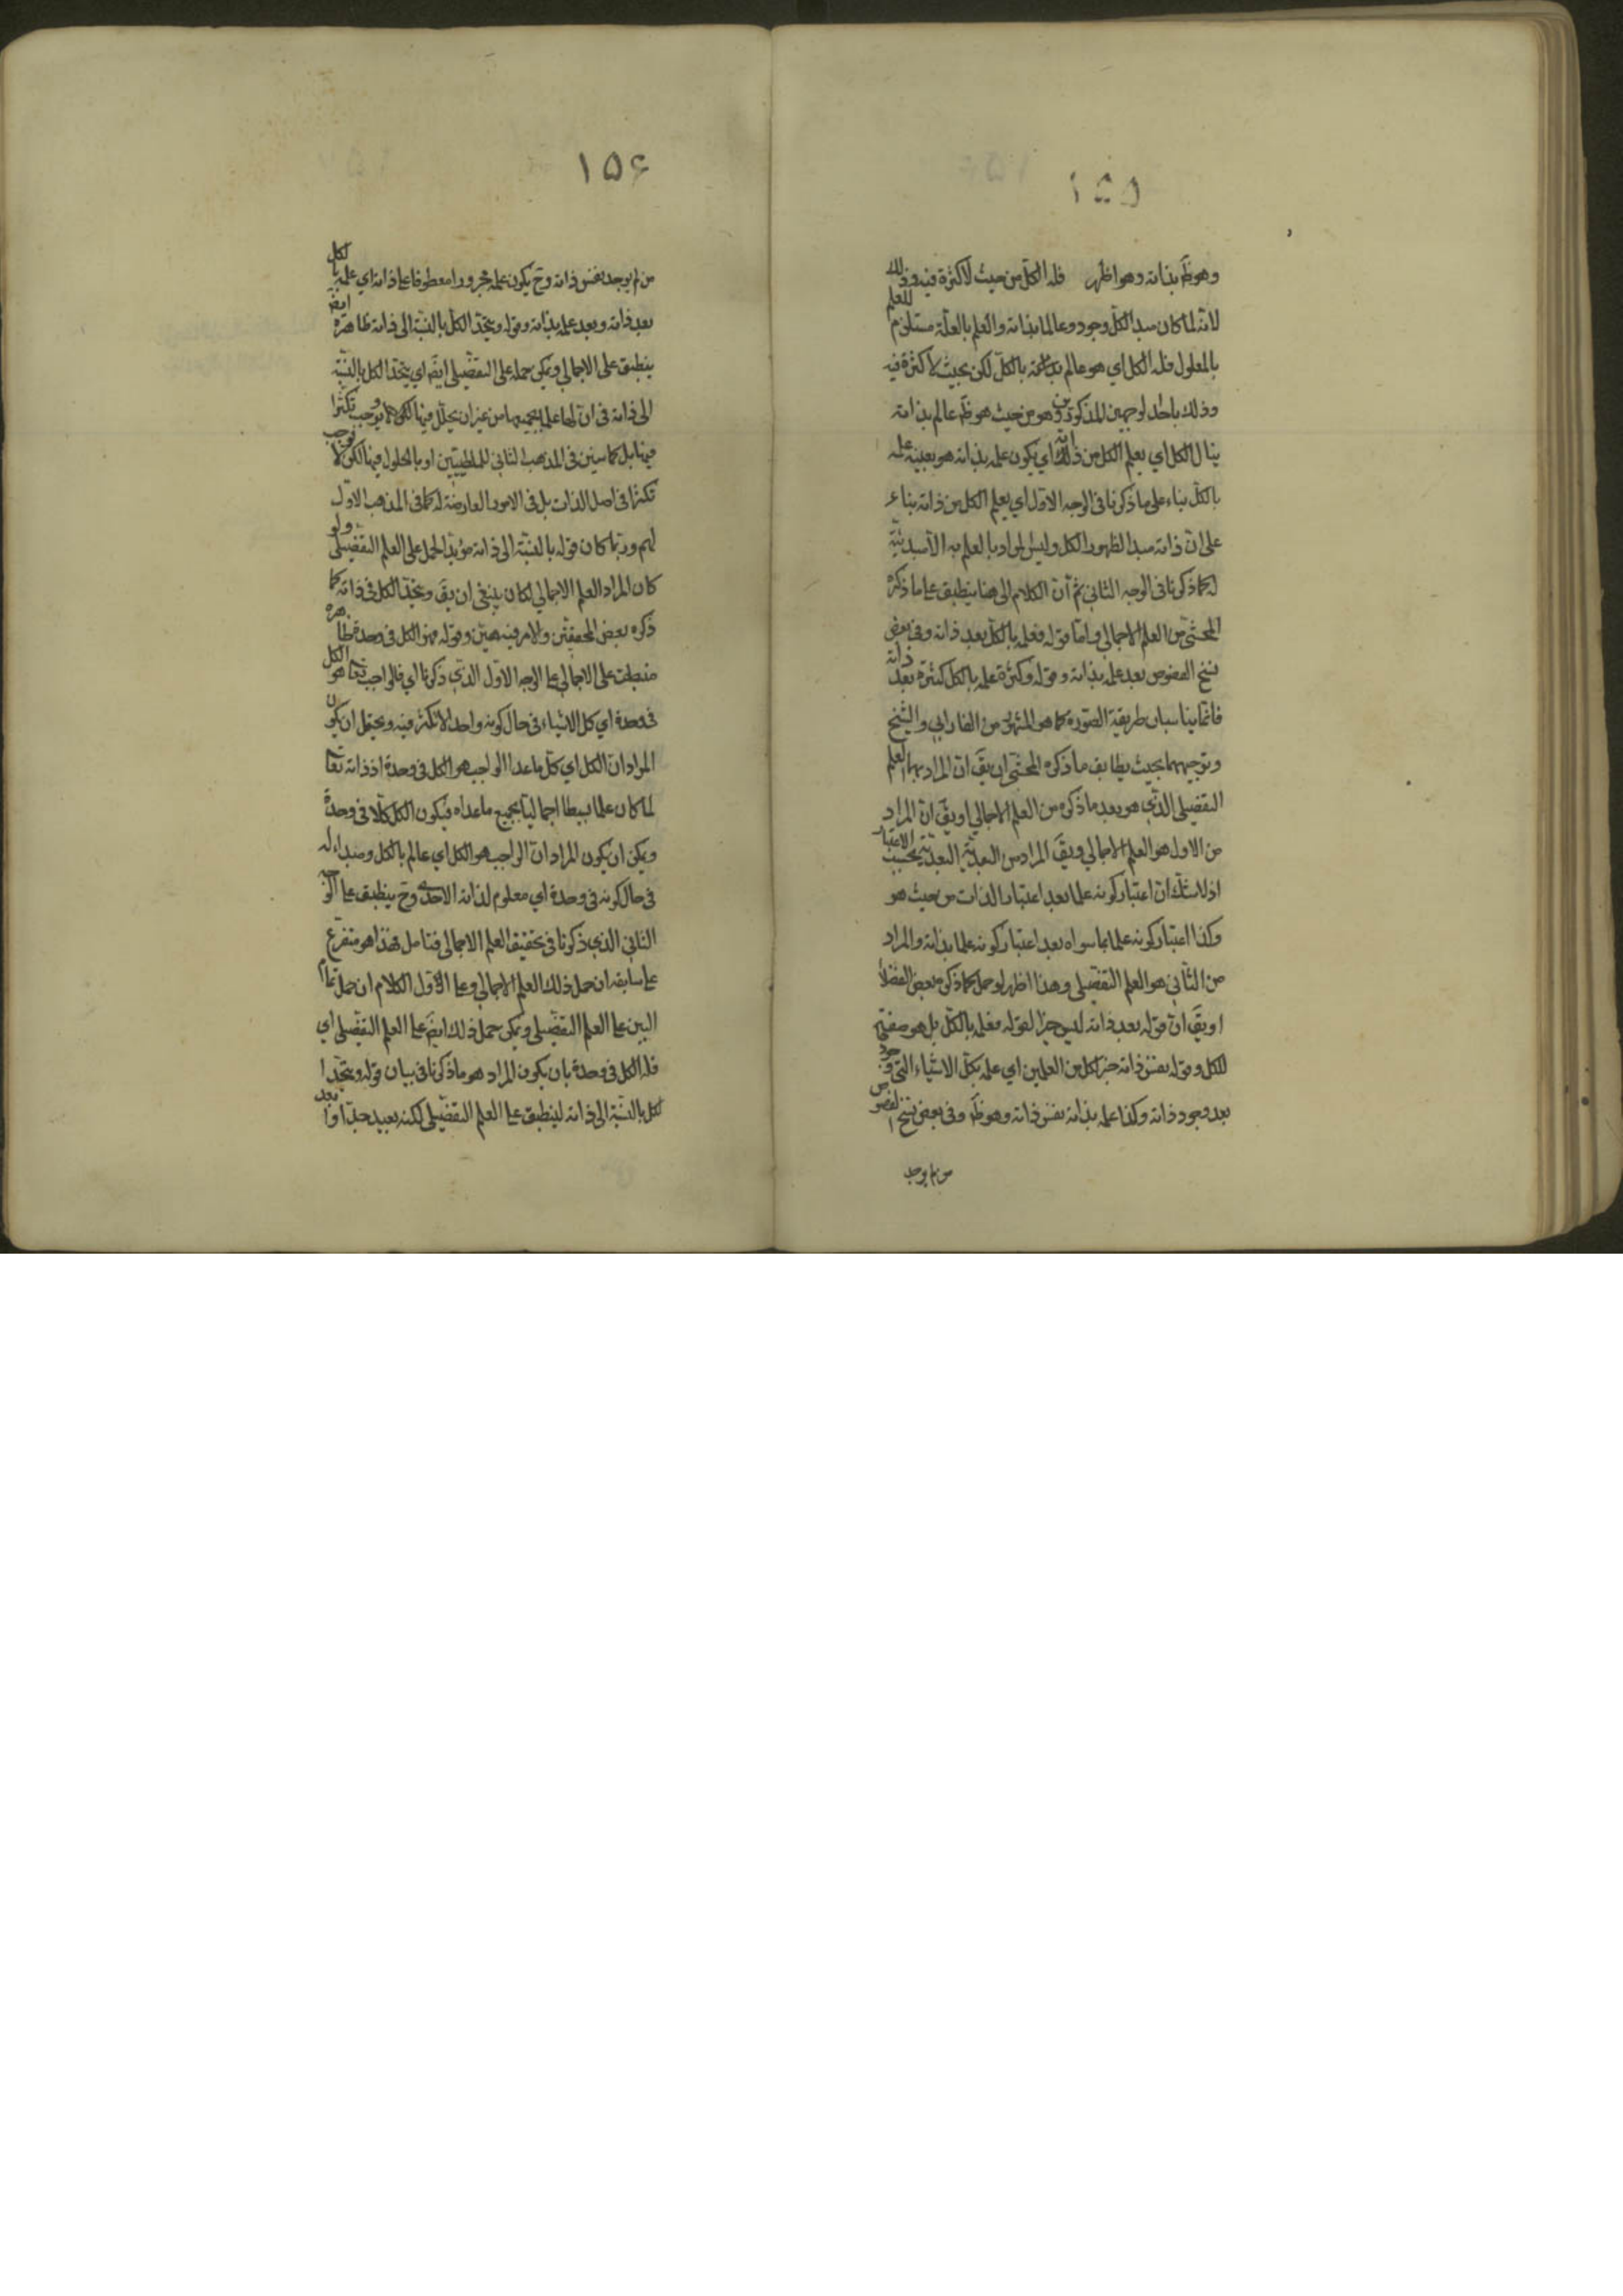 ١٥٥
وهو ظ بذاته وهو اظهر فله الكل من حيث لا كثرة فيه وذلك
لانه لما كان مبدا لكل وجود وعالما بذاته والعلم بالعلة مستلزم للعلم
بالمعلول فله الكل اي هو عالم بذاته بالكل لكن بحيث لا كثرة فيه
وذلك باحد الوجهين المذكورين وهو من حيث هو ظ عالم بذاته
ينال الكل اي يعلم الكل من ذاته اي يكون علمه بذاته هو بعينه علمه
بالكل بناء على ما ذكرنا في الوجه الاول اي يعلم الكل من ذاته بناء
على ان ذاته مبدا لظهور الكل وليس المراد بالعلم به الا مبدئية
له كما ذكرنا في الوجه الثاني ثم ان الكلام الى هنا ينطبق على ما ذكره
المحشي من العلم الاجمالي واما قوله فعلمه بالكل بعد ذاته وفي بعض
نسخ الفصوص بعد علمه بذاته وقوله وكثرة علمه بالكل كثرة بعد ذاته
فانما يناسبان طريقة الصورة كما هو المشهور من الفارابي والشيخ
وتوجيههما بحيث يطابق ما ذكره المحشي ان يق ان المراد بهما العلم
التفصيلي الذي هو بعد ما ذكره من العلم الاجمالي او يق ان المراد
من الاول هو العلم الاجمالي ويق المراد من البعدية البعدية بحسب الاعتبار
اذ لا شك ان اعتبار كونه علما بعد اعتبار الذات من حيث هو
وكذا اعتبار كونه علما بما سواه بعد اعتبار كونه علما بذاته والمراد
من الثاني هو العلم التفصيلي وهذا اظهر لو حمل كما ذكره بعض الفضلا
او يق ان قوله بعد ذاته ليس خبرا لقوله فعلمه بالكل بل هو
للكل وقوله نفس ذاته خبر لكل من العلمين اي علمه بكل الاشياء التي
بعد وجود ذاته وكذا علمه بذاته نفس ذاته وهو ظ وفي بعض نسخ الفصوص
من لم يوجد
١٥۶
من لم يوجد نفس ذاته وح يكون علمه مجرورا معطوفا على ذاته اي علمه بالكل
بعد ذاته وبعد علمه بذاته وقوله ويتحد الكل بالنسبة الى ذاته ظاهره ايض
ينطبق على الاجمالي ويمكن حمله على التفصيلي ايض اي يتحد الكل بالنسبة
الى ذاته في ان لها علما بجميعها من غير ان يحلل فيها لكن يوجب تكثرا
فيها بل كما سيتبين في المذهب الثاني للملطيين او بالحلول فيها لكن لا يوجب
تكثرا في اصل الذات بل في الامور العارضة له كما في المذهب الاول
لهم وربما كان قوله بالنسبة الى ذاته مؤيدا لحمل على العلم التفصيلي ولو
كان المراد العلم الاجمالي لكان ينبغي ان يق ويتحد الكل في ذاته كما
ذكره بعض المحققين والامر فيه هين وقوله فهو الكل في وحدة فظاهره
منطبق على الاجمالي على الوجه الاول الذي ذكرنا اي فالواجب تعالى هو الكل
في وحدة اي كل الاشياء في حال كونه واحدا لا تكثر فيه ويحتمل ان يكون
المراد ان الكل اي كل ما عدا الواجب هو الكل في وحدة اذ ذاته تعالى
لما كان علما بسيطا اجماليا بجميع ما عداه فيكون الكل كلا في وحدة
ويمكن ان يكون المراد ان الواجب هو الكل اي عالم بالكل ومبداء له
في حال كونه في وحدة اي معلوم لذاته الاحدى وح ينطبق على الوجه
الثاني الذي ذكرنا في تحقيق العلم الاجمالي فتامل فهذا هو متفرع
على سابقه ان حمل ذلك العلم الاجمالي وعلى الاول الكلام ان حمل
البين على العلم التفصيلي ويمكن حمل ذلك ايض على العلم التفصيلي اي
فله الكل في وحدة بان يكون المراد هو ما ذكرنا في بيان قوله ويتحد ا
لكل بالنسبة الى ذاته لينطبق على العلم التفصيلي لكنه بعيد جدا